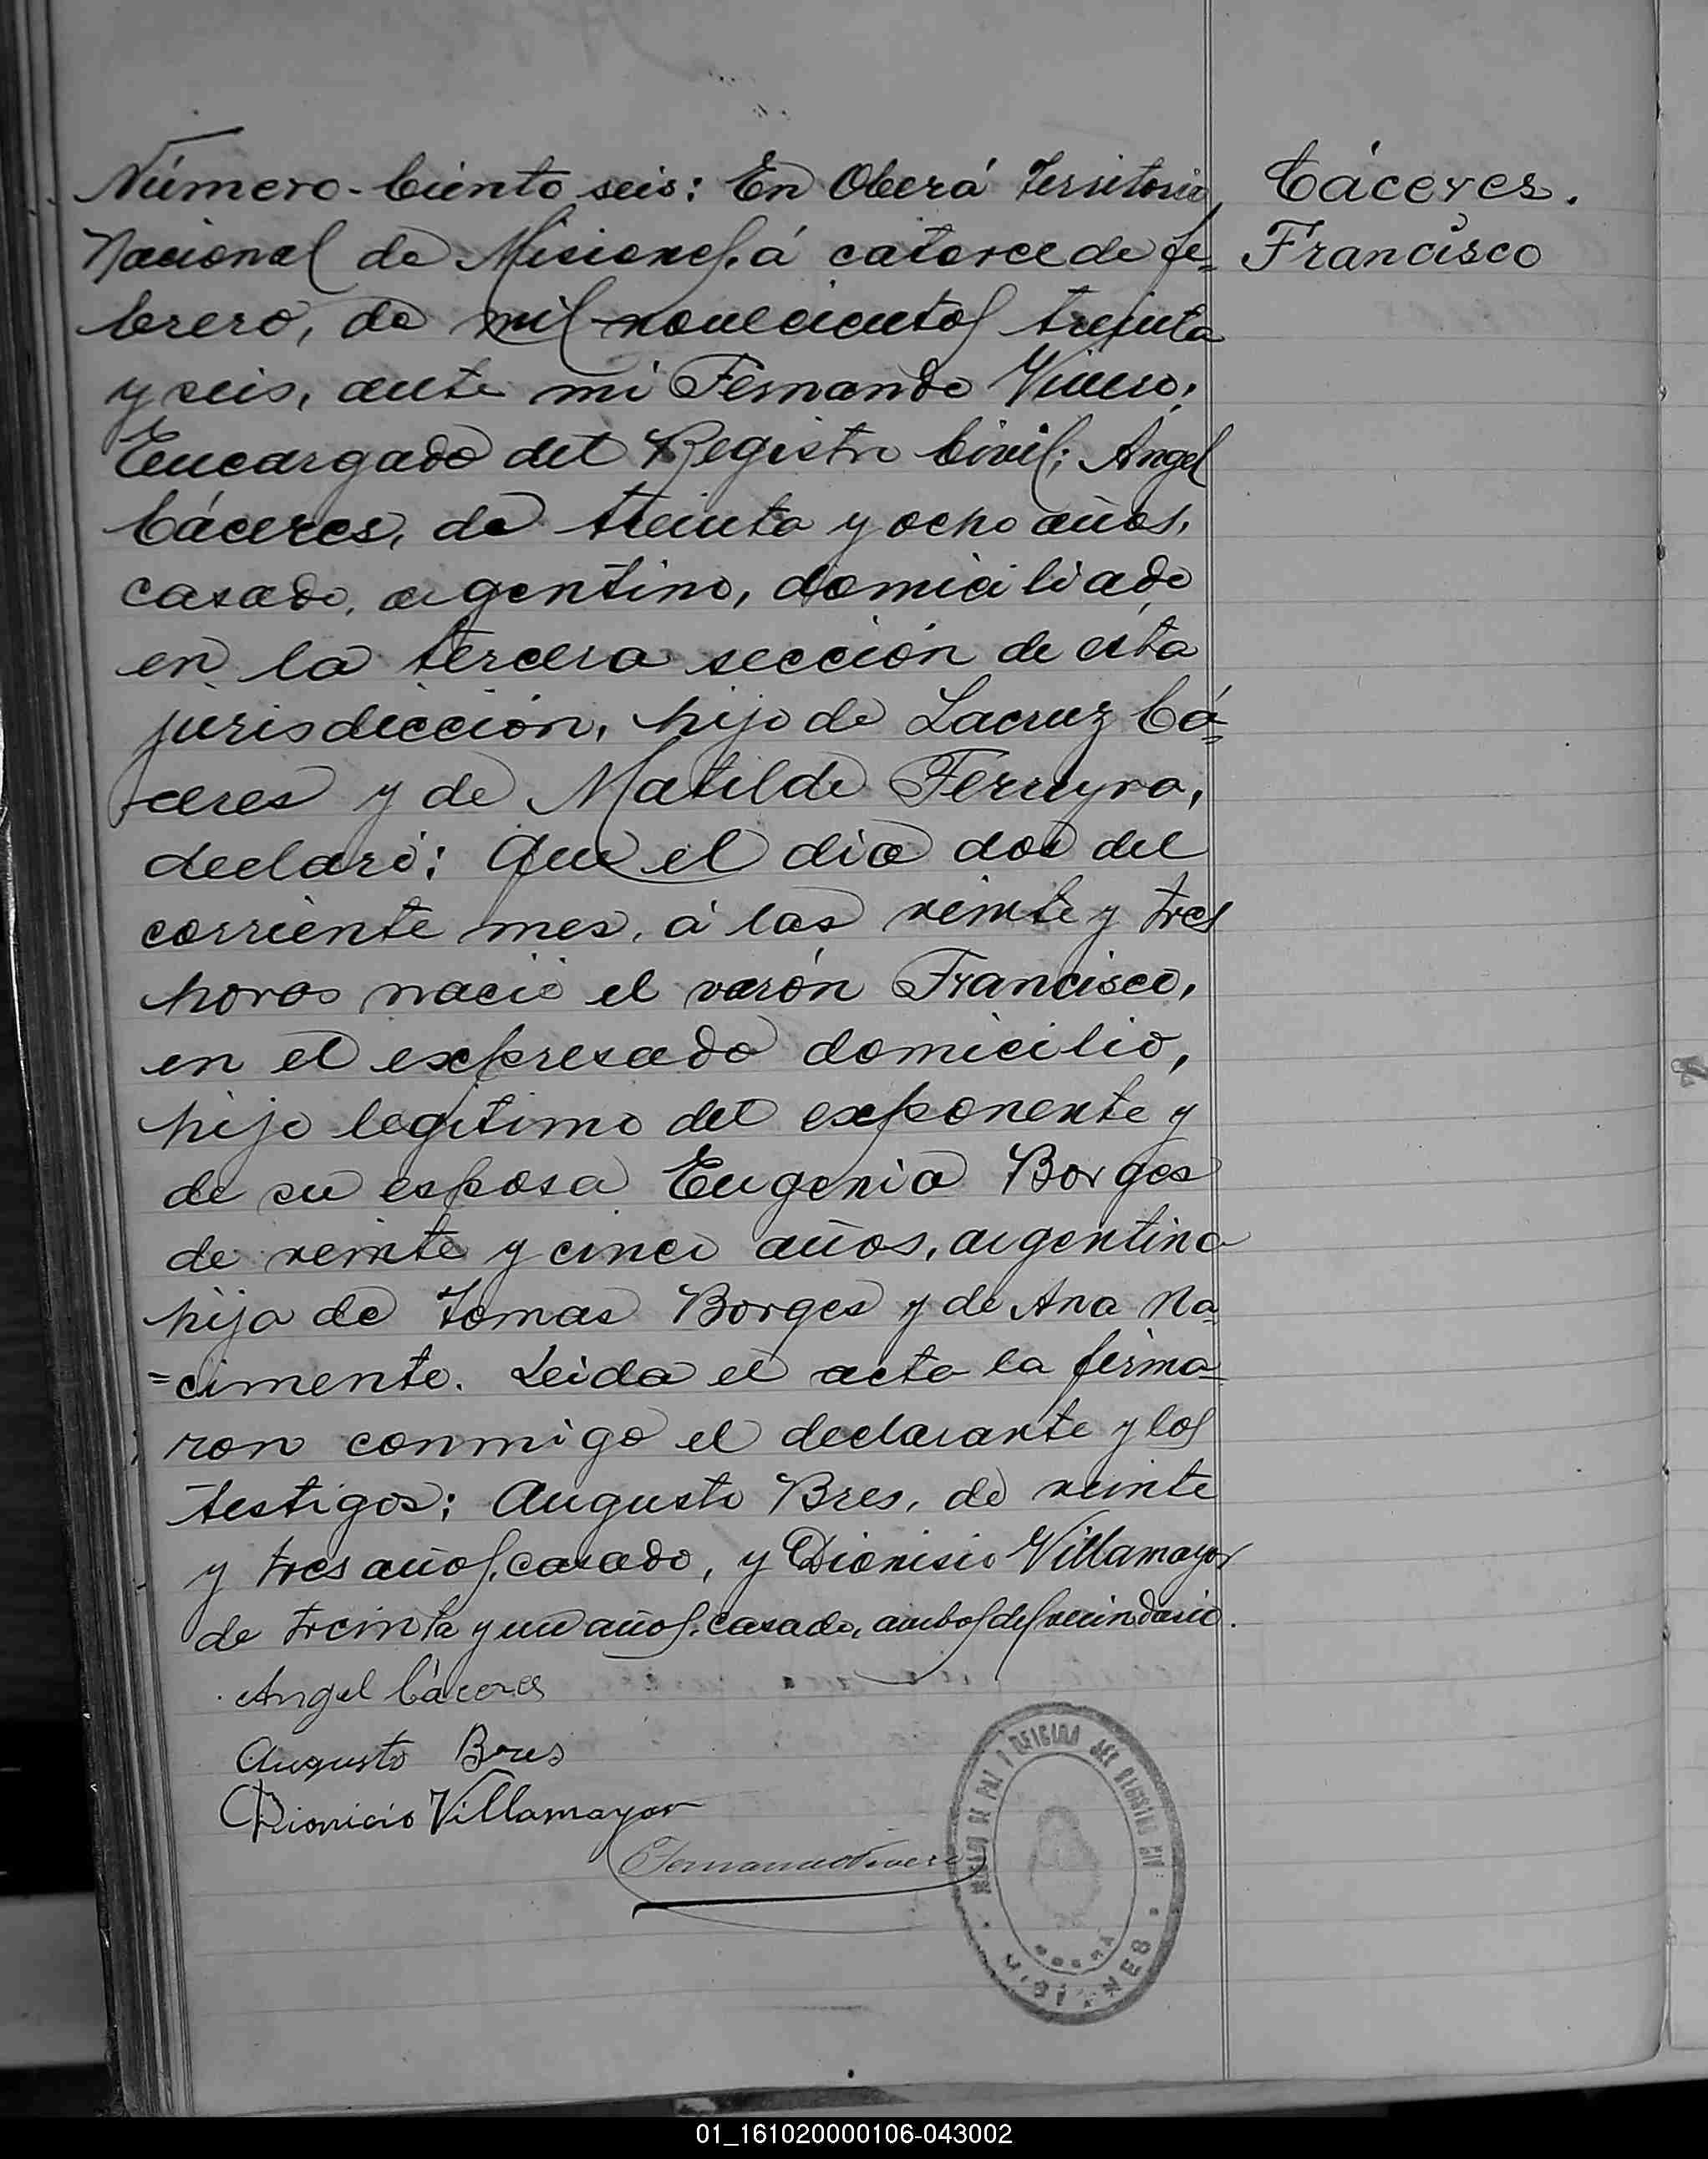 Número Ciento seis: En Oberá Territorio
Nacional de Misiones, á catorce de fe=
brero, de mil novecientos treinta
y seis, ante mi Fernando Vivero;
Encargado del Registro Civil; Angel
Cáceres, de treinta y ocho años,
casado, argentino, domiciliado
en la tercera sección de esta
jurisdicción, hijo de Lacruz Cá=
ceres y de Matilde Ferreyra,
declaró: Que el dia dos del
corriente mes, á las veinte y tres
horas nació el varón Francisco,
en el expresado domicilio,
hijo legitimo del exponente y
de su esposa Eugenia Borges
de veinte y cinco años, argentina
hija de Tomas Borges y de Ana Na
=cimento. Leida el acta la firma=
ron conmigo el declarante y los
testigos; Augusto Bres, de veinte
y tres años, casado, y Dionisio Villamayor
de treinta y un años, casado, ambos del vecindario.
Angel Cáceres
Augusto Bres
Dionicio Villamayor
Fernando Vivero
Cáceres.
Francisco
JUZGADO DE PAZ Y OFICINA DEL REGISTRO CIVIL
OBERÁ
MISIONES
01_161020000106-043002